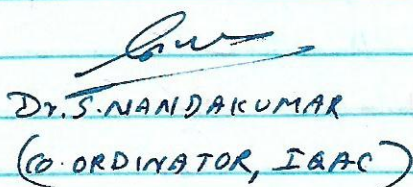 Dr. S. NANDAKUMAR
(CO. ORDINATOR, IQAC)